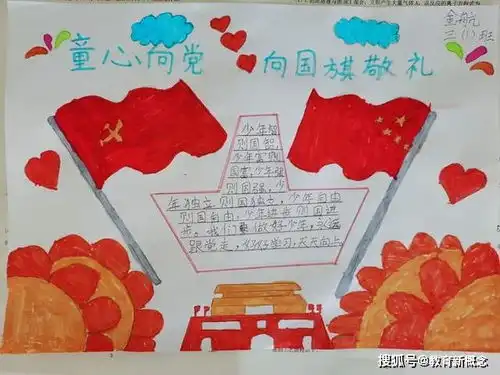 童心向党 向国旗敬礼
金航
三(1)班
少年智
则国智
少年富则
国富,少年强
则国强,少
年独立则国独立,少年自由
则国自由,少年进步则国进
步。我们要做好少年,永远
跟党走,好好学习,天天向上
搜狐号@教育新概念